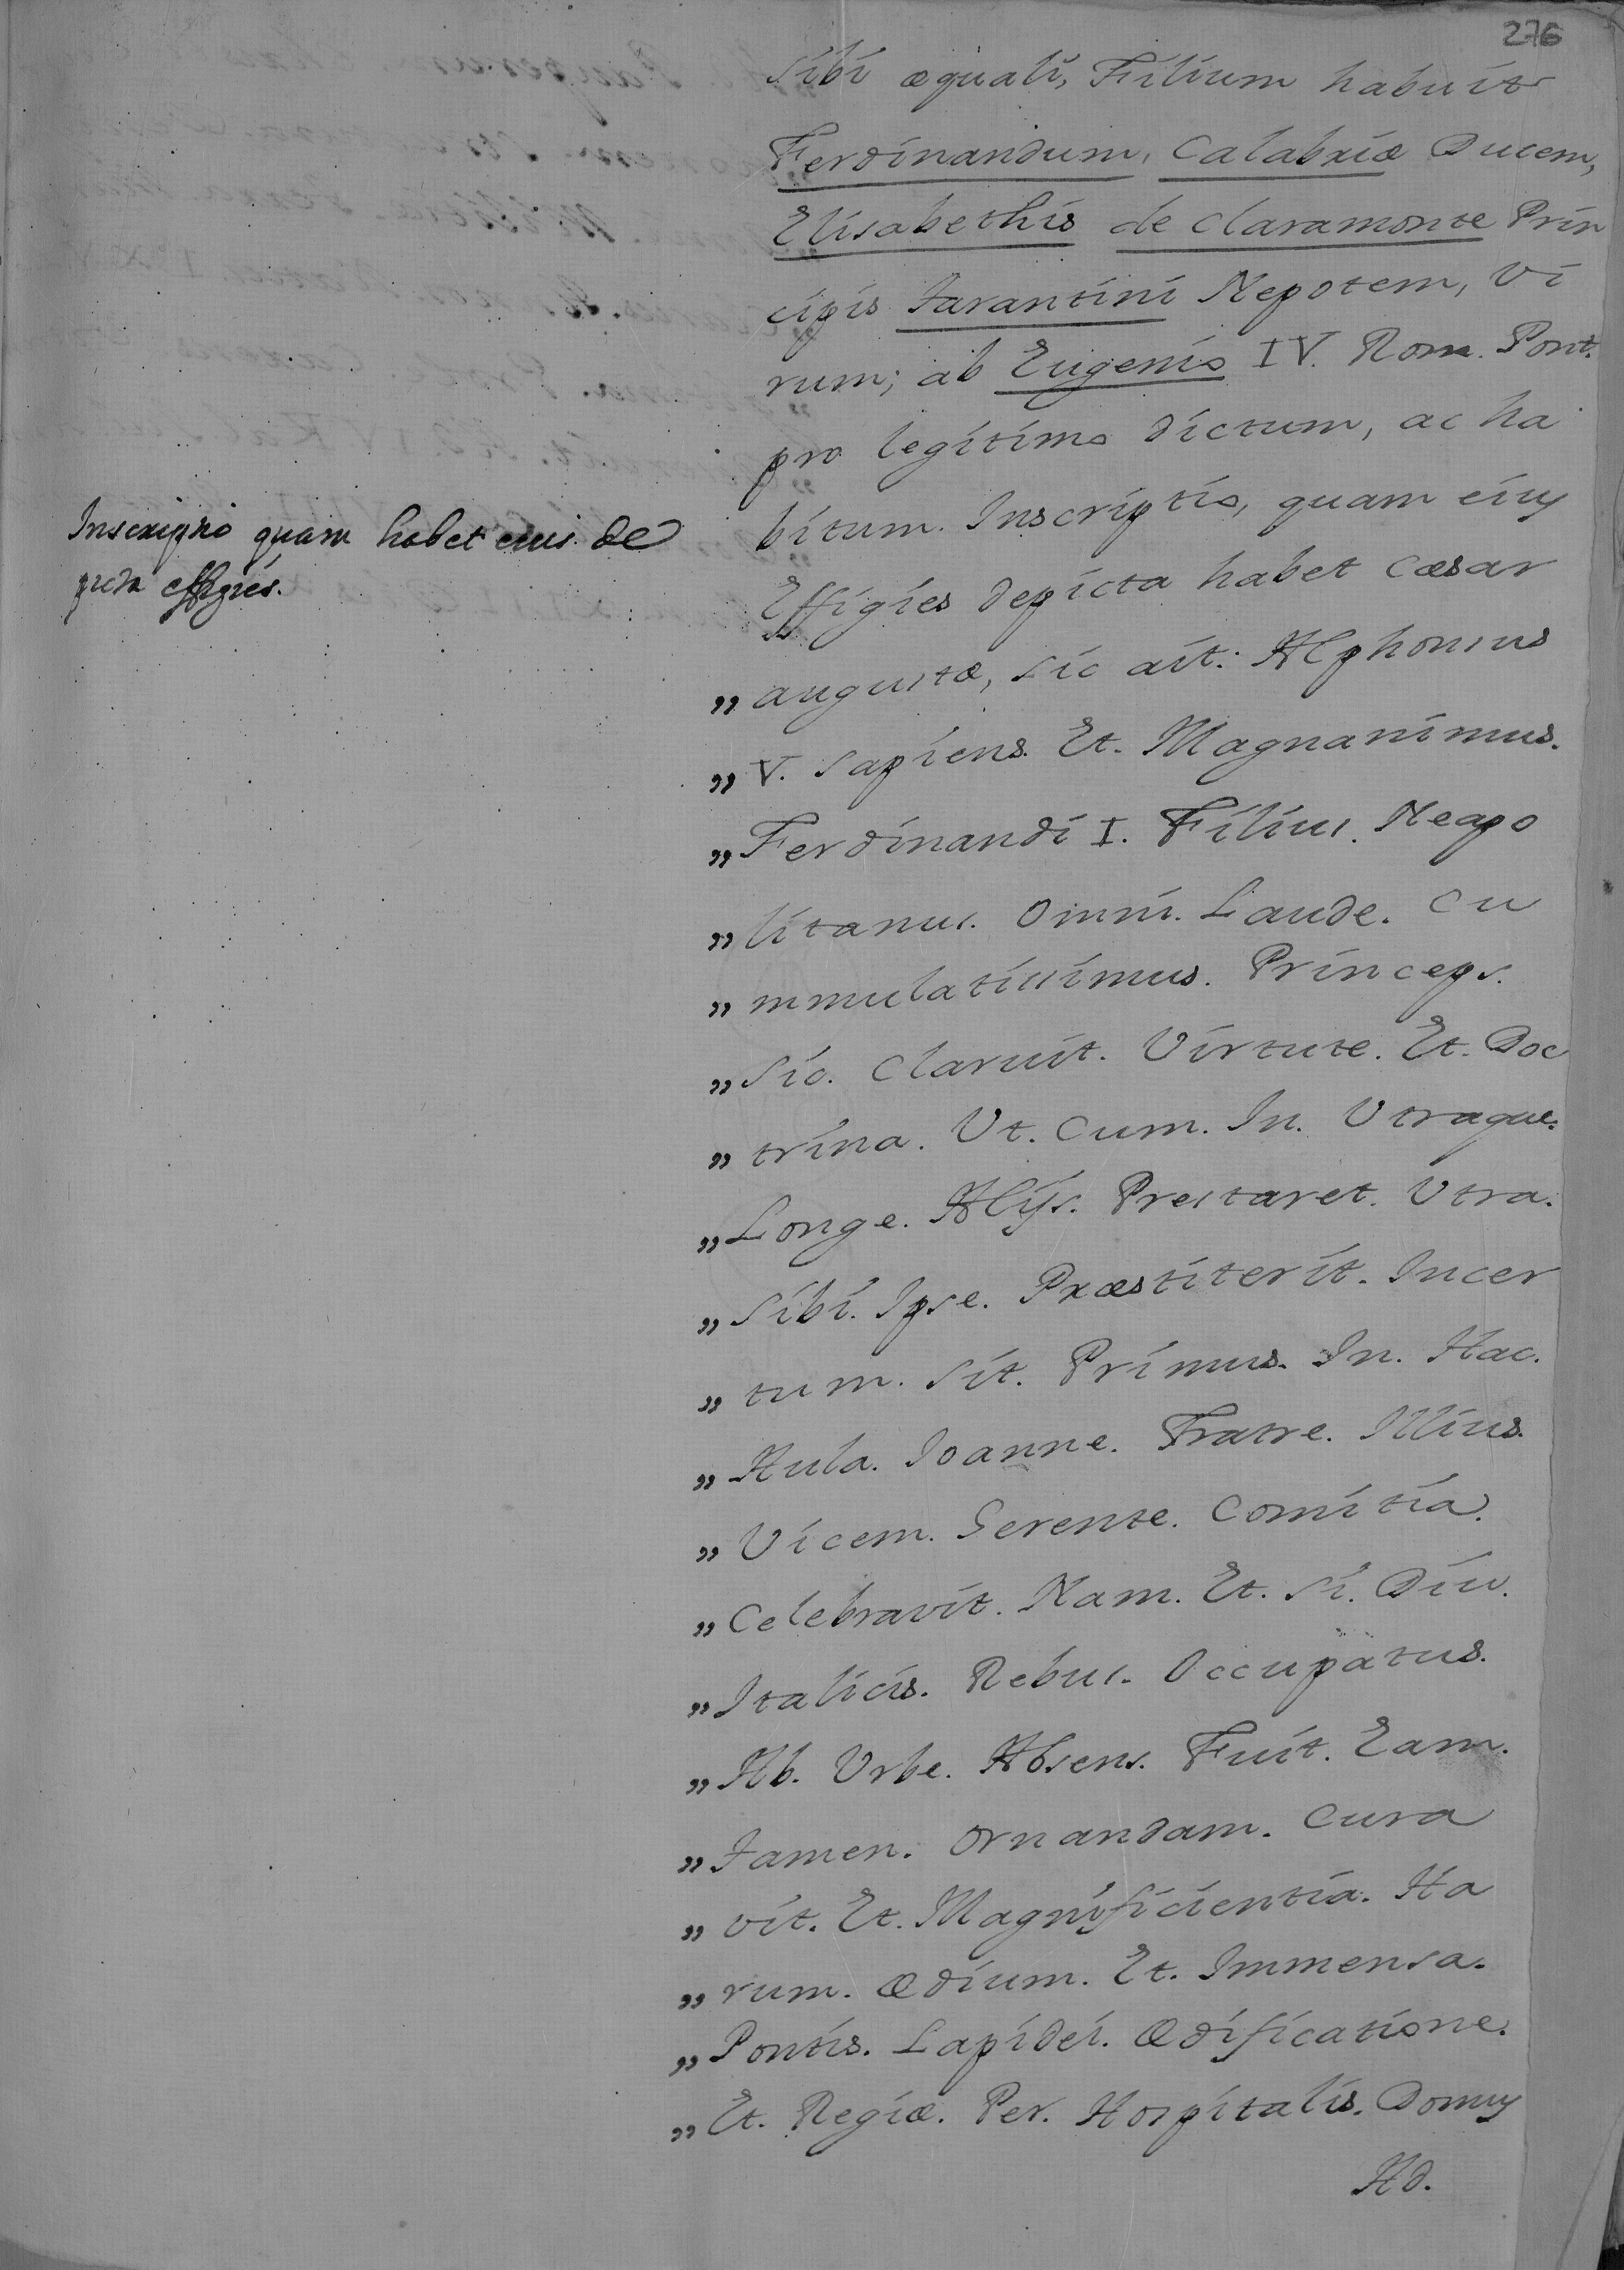 276
sibi æquali, Filium habuit
Ferdinandum, Calabriæ Ducem,
Elisabethis de Claramonte Prin
cipis Tarantini Nepotem, Vi
rum; ab Eugenio IV. Rom. Pont.
pro legitimo dictum, ac ha
bitum. Inscriptio, quam eius
Effigies depicta habet Cæsar
Inscriptio quam habet eius de
picta effigies.
„ augustæ, sic ait: Alphonsus
„ V. Sapiens. Et. Magnanimus.
„ Ferdinandi I. Filius. Neapo
„ litanus. Omni. Laude. Cu
„ mmulatissimus. Princeps.
„ Sic. Claruit. Virtute. Et. Doc
„ trina. Vt. Cum. In. Vtraque.
„ Longe. Alijs. Prestaret. Vtra.
„ Sibi. Ipse. Præstiterit. Incer
„ tum. Sit. Primus. In. Hac.
„ Aula. Ioanne. Fratre. Illius.
„ Vicem. Gerente. Comitia.
„ Celebravit. Nam. Et. Si. Diu.
„ Italicis. Rebus. Occupatus.
„ Ab. Vrbe. Absens. Fuit. Eam.
„ Tamen. Ornandam. Cura
„ vit. Et. Magnificientia. Ha
„ rum. Ædium. Et. Immensa.
„ Pontis. Lapidei. Ædificatione.
„ Et. Regiæ. Per. Hospitalis. Domus
Ad.